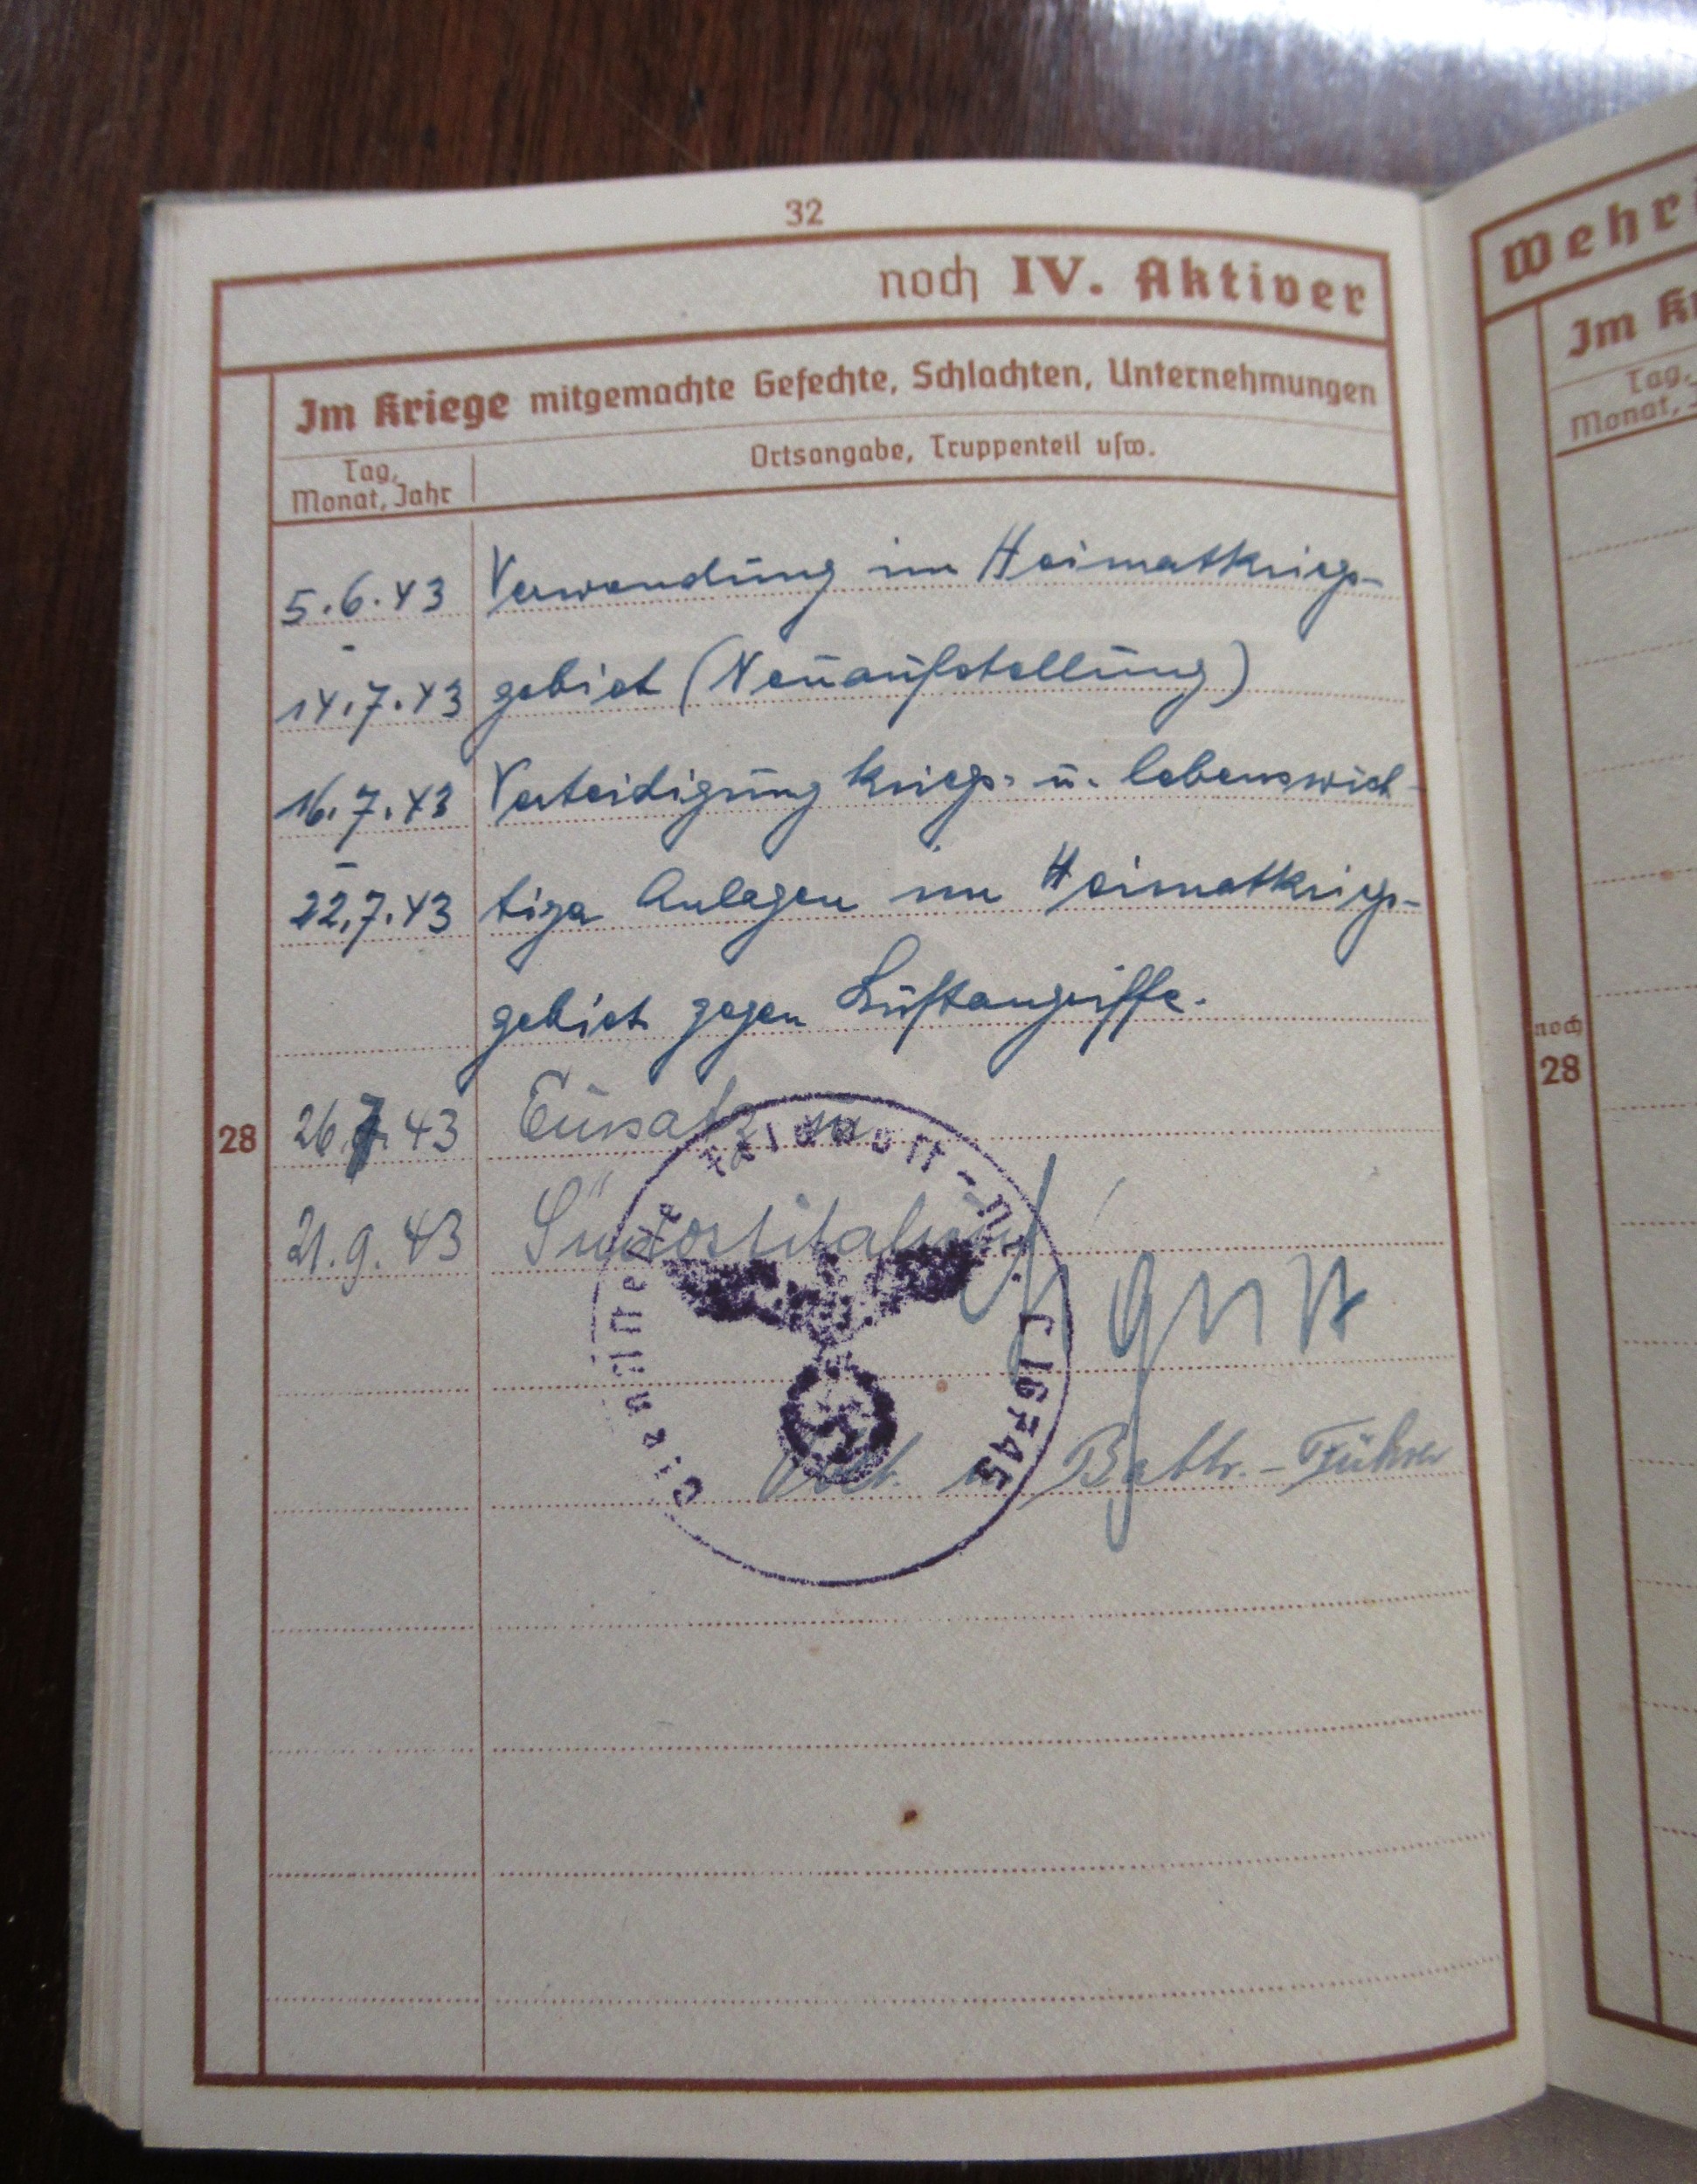 32
noch IV. Aktiver
Im Kriege mitgemachte Gefechte, Schlachten, Unternehmungen
Tag, Monat, Jahr
Ortsangabe, Truppenteil usw.
5.6.43 Verwendung im Heimatkriegs-
-
14.7.43 gebiet (Neuaufstellung)
16.7.43 Verteidigung kriegs- u. lebenswich-
-
22.7.43 tige Anlagen im Heimatkriegs-
gebiet gegen Luftangriffe.
28 26.7.43 Einsatz in
21.9.43 Südostitalien
Dienststelle Feldpost-Nr. L 16745
u. Battr.-Führer
Wehr
Im Kr
Tag,
Monat,
noch
28